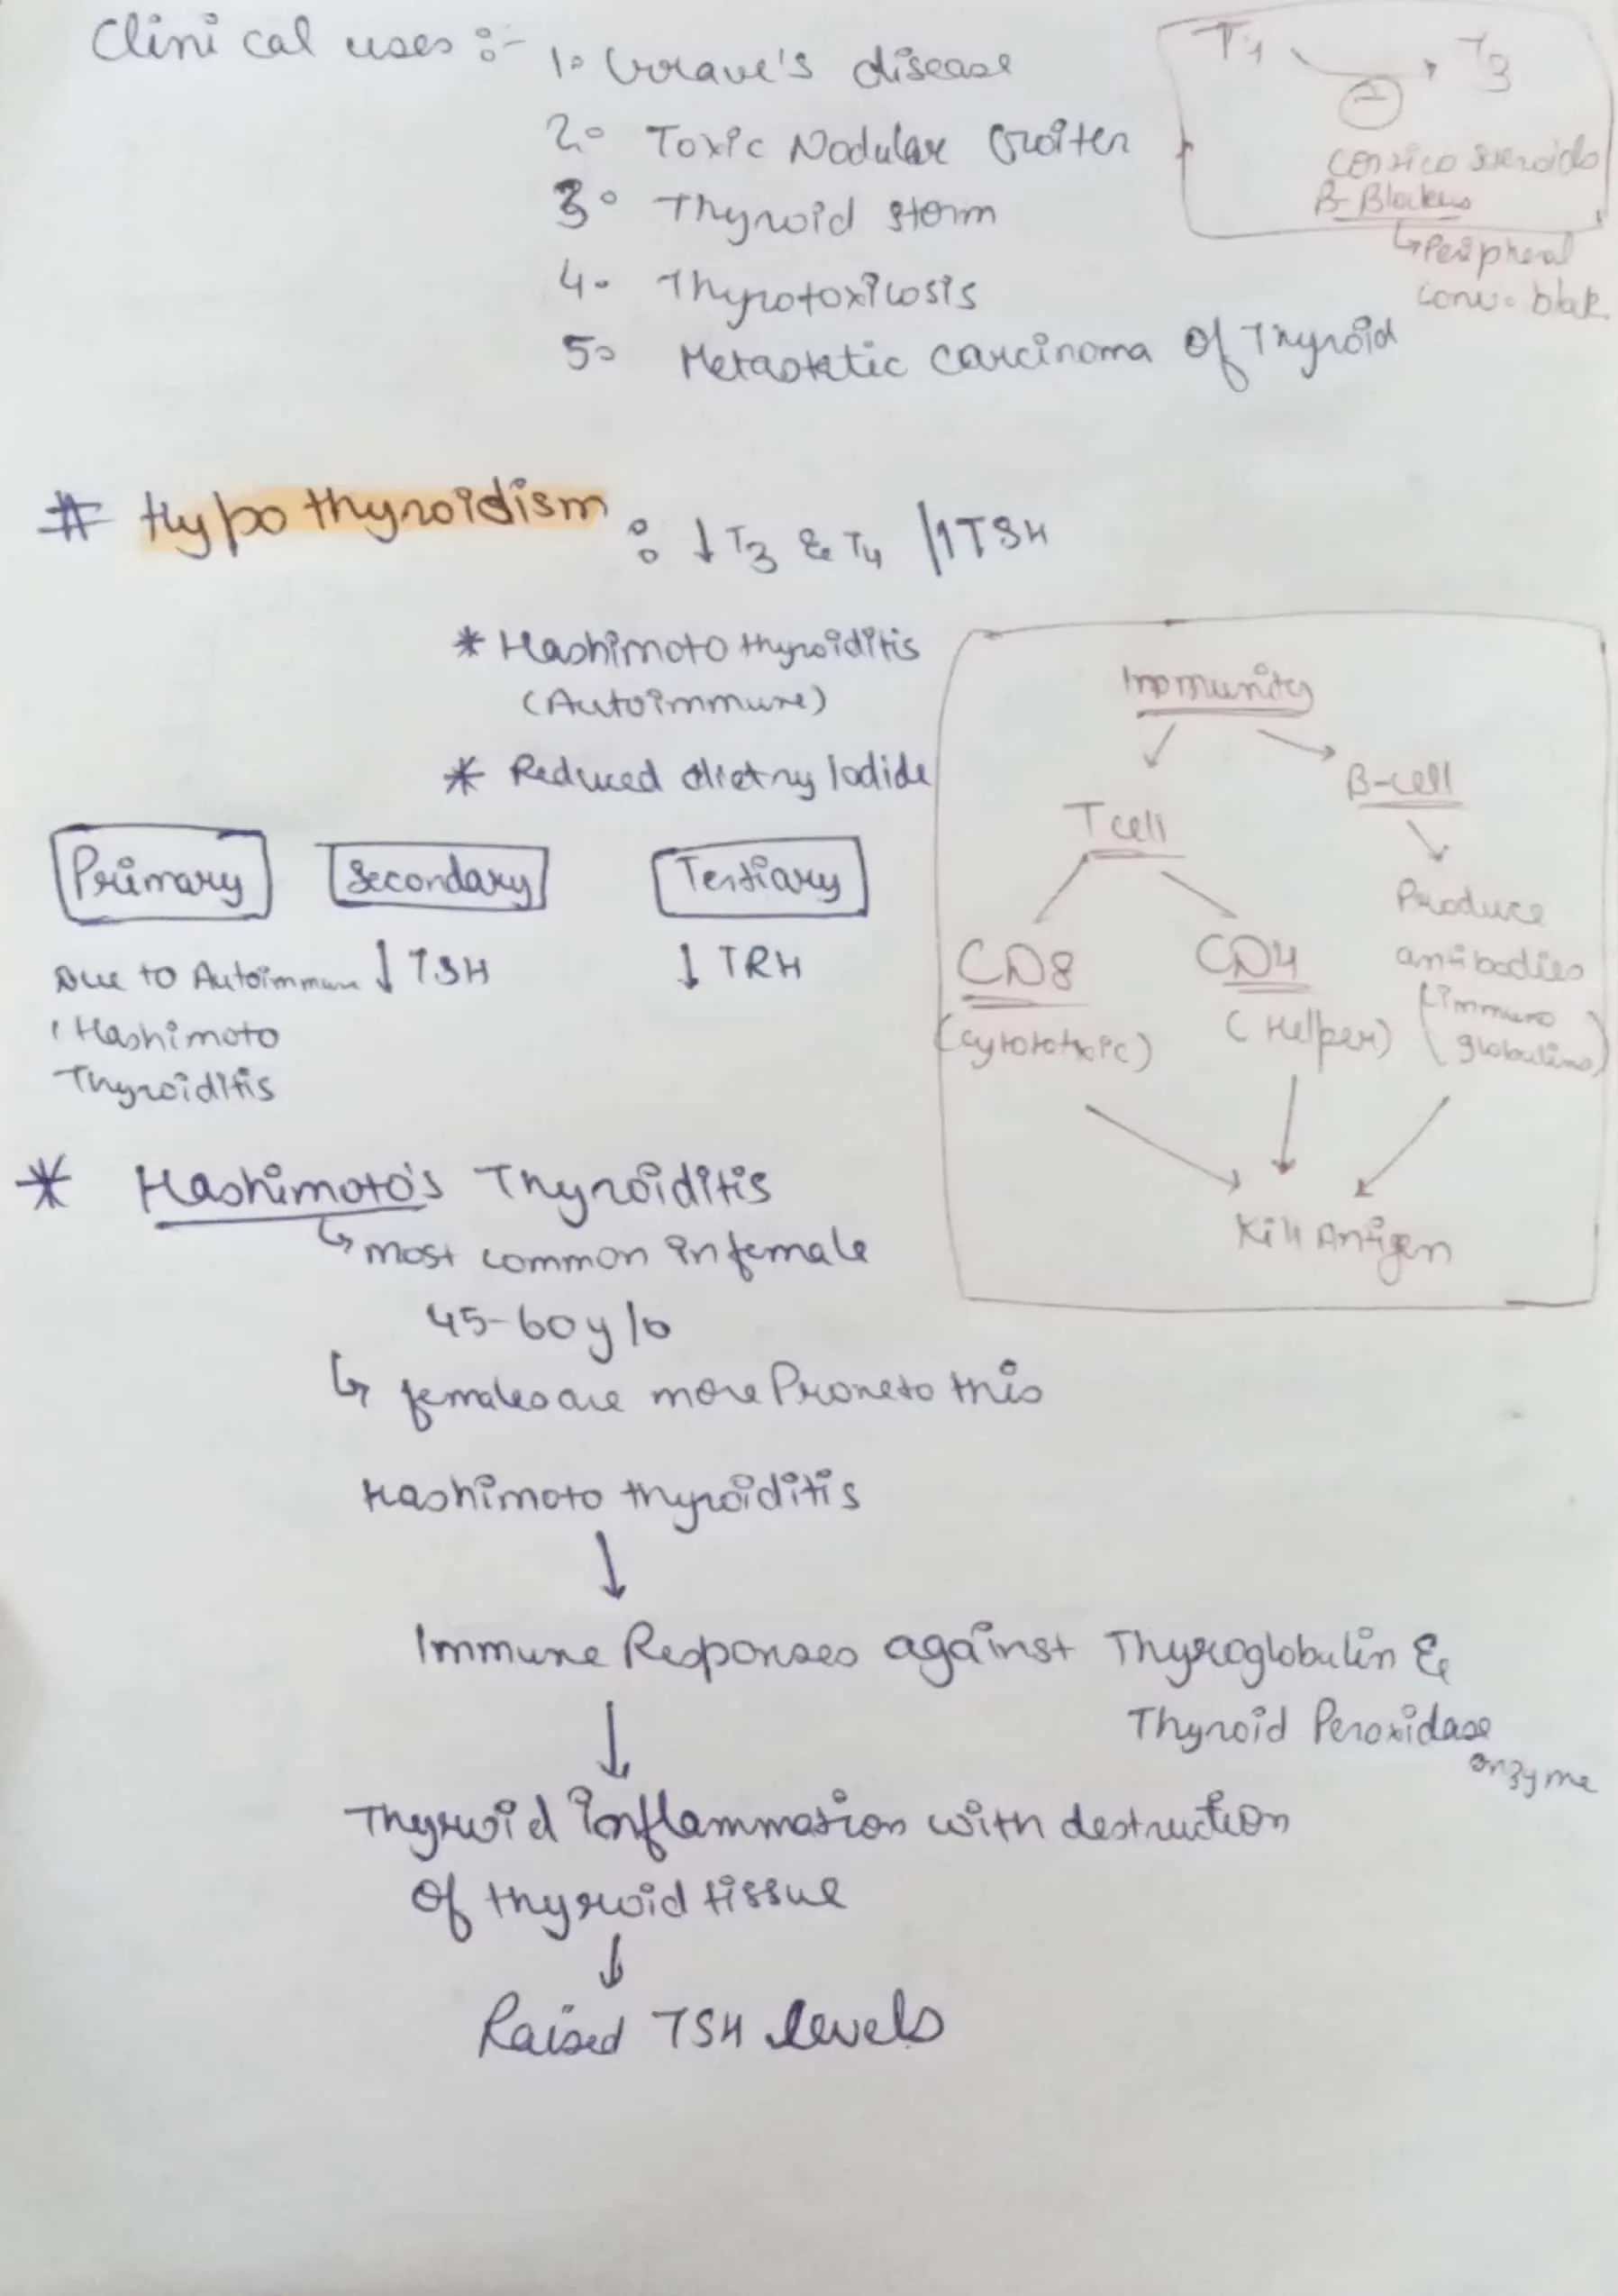 Clinical uses :-
1. Grave's disease
2. Toxic Nodular Goiter
3. Thyroid storm
4. Thyrotoxicosis
5. Metastatic carcinoma of Thyroid
T4 → T3
corticosteroids
β-Blokers
↳ Peripheral
conv. blok.
# Hypothyroidism : ↓T3 & T4 /↑TSH
* Hashimoto thyroiditis
(Autoimmune)
* Reduced dietry Iodide
Primary Secondary Tertiary
Due to Autoimmun ↓TSH ↓TRH
Hashimoto
Thyroiditis
Immunity
T cell β-cell
CD8 CD4
(cytototoxic) (Helper)
Produce
antibodies
(immuno
globulins)
Kill Antigen
* Hashimoto's Thyroiditis
↳ most common in female
45-60 y/o
↳ females are more Prone to this
Hashimoto thyroiditis
↓
Immune Responses against Thyroglobulin &
Thyroid Peroxidase
enzyme
↓
Thyroid inflammation with destruction
of thyroid tissue
↓
Raised TSH levels